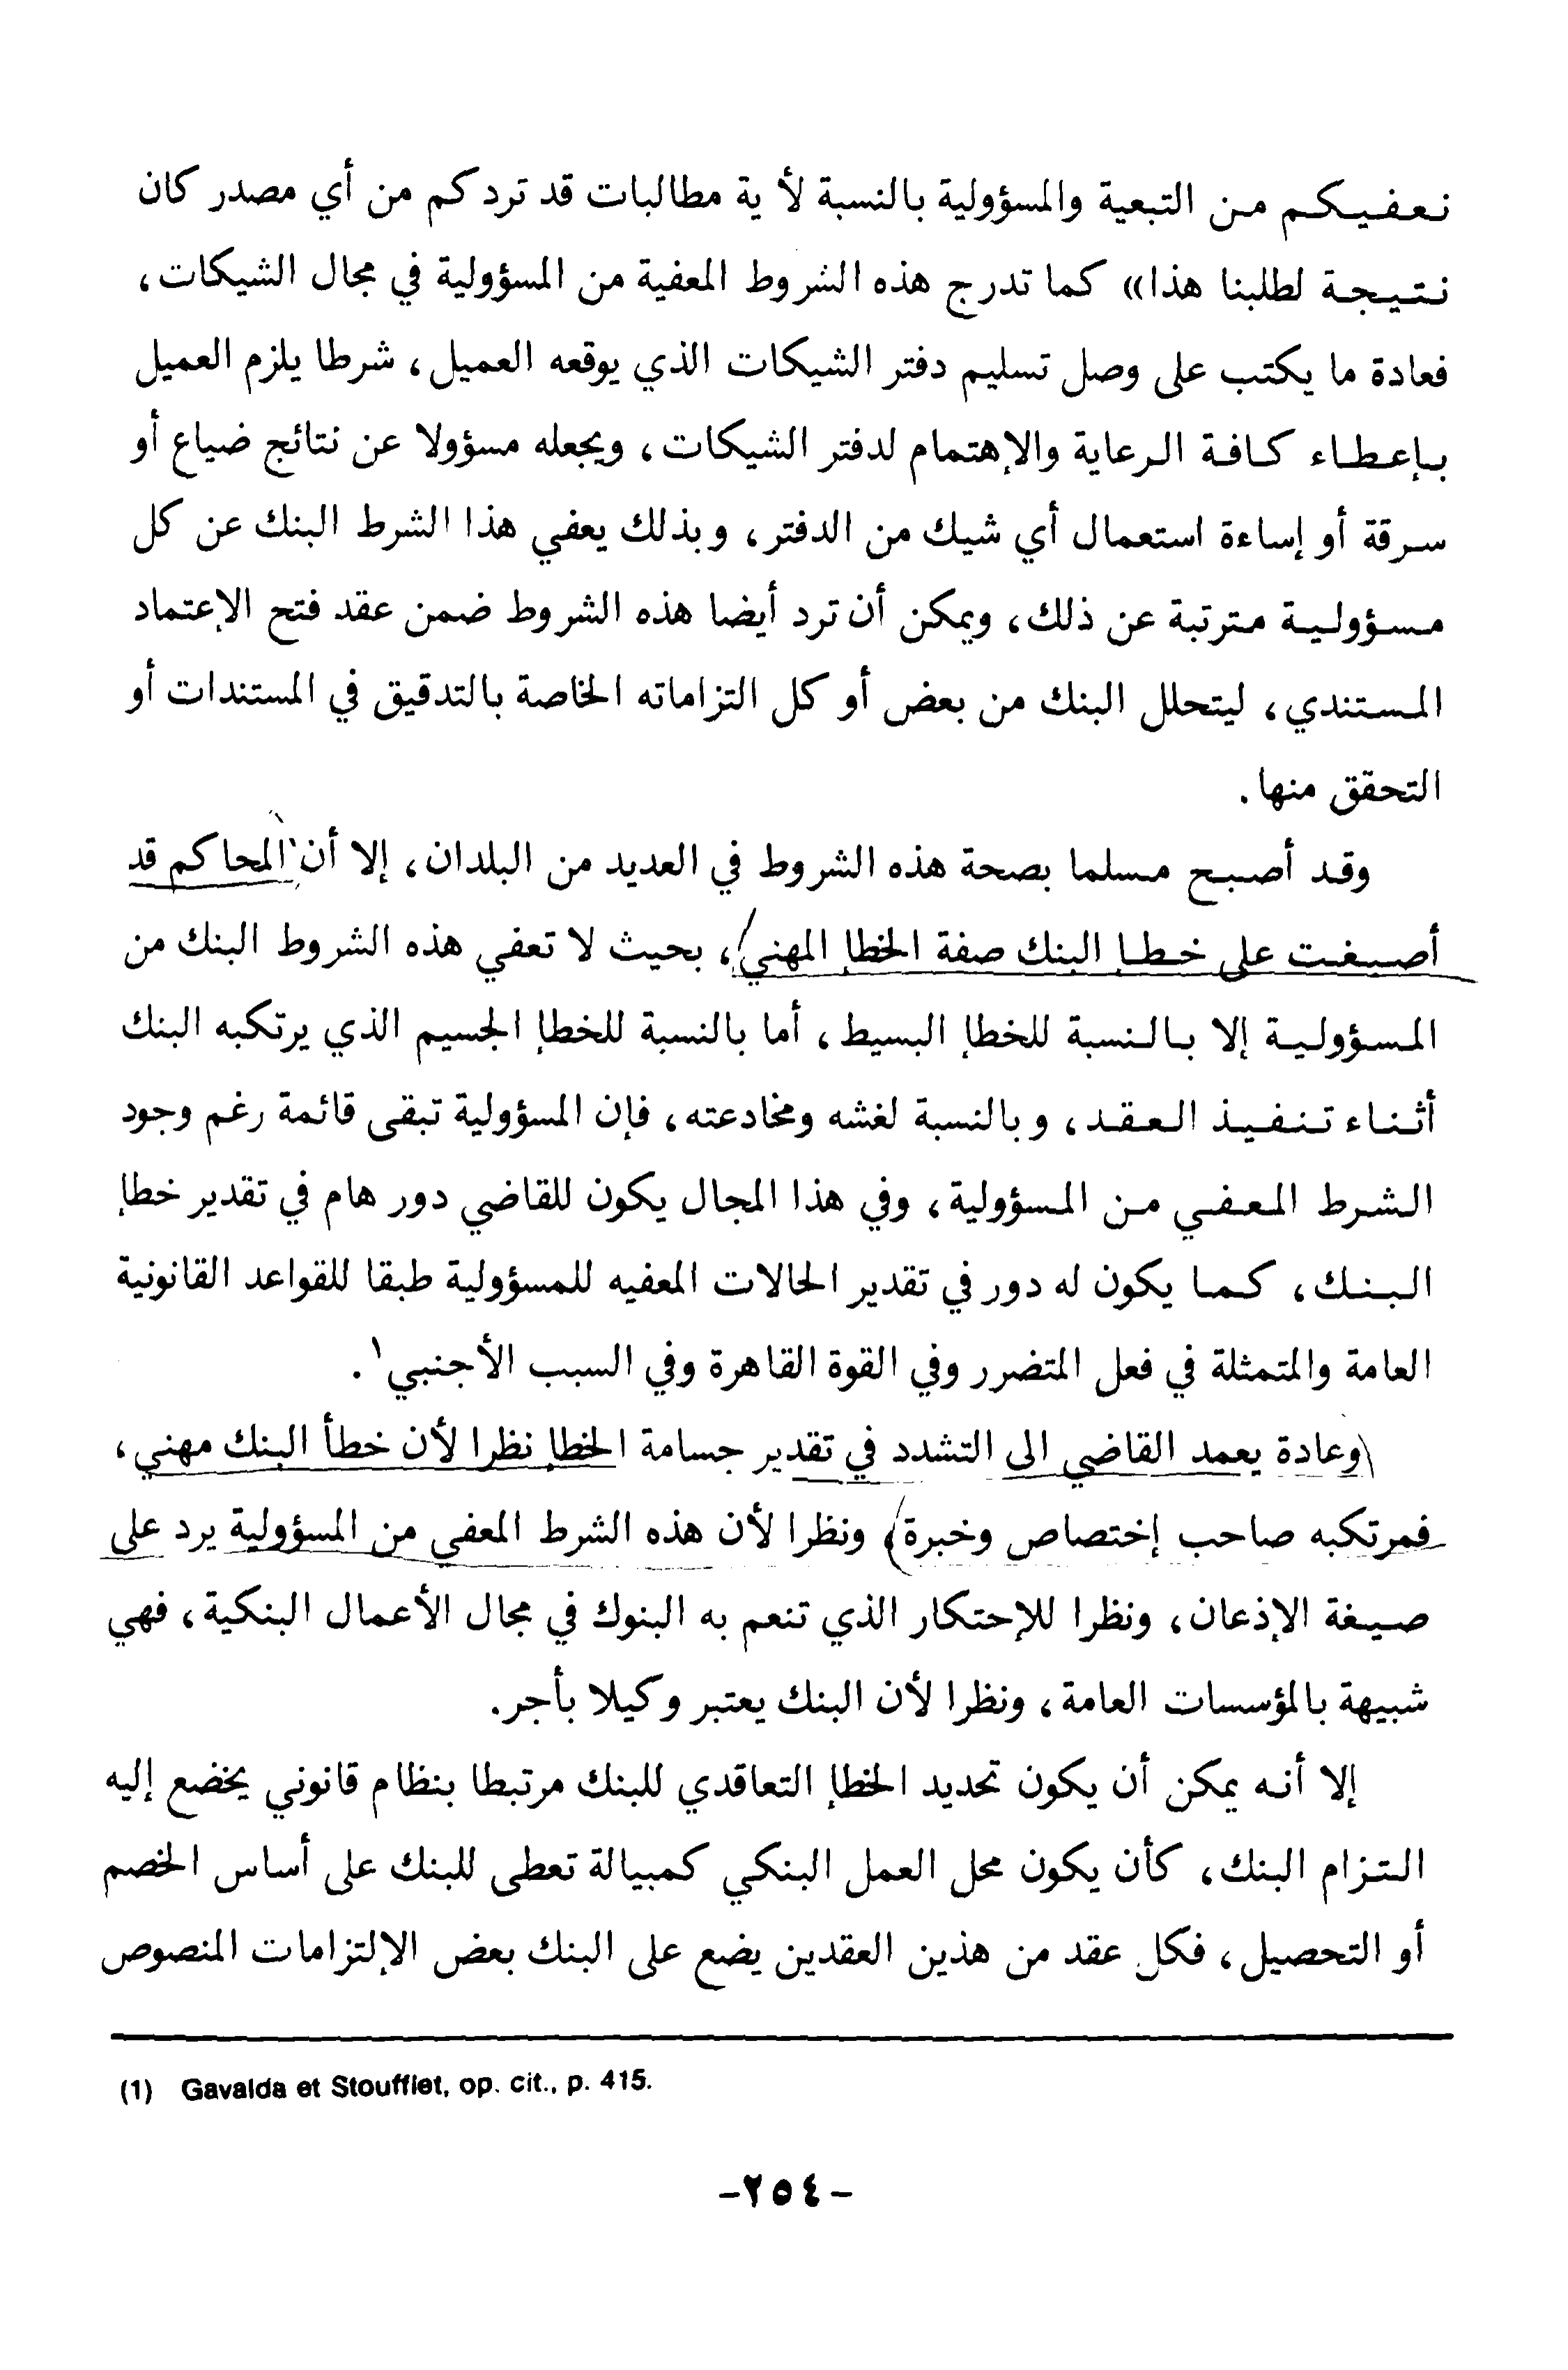 نعفيكم من التبعية والمسؤولية بالنسبة لأية مطالبات قد تردكم من أي مصدر كان
نتيجة لطلبنا هذا» كما تدرج هذه الشروط المعفية من المسؤولية في مجال الشيكات،
فعادة ما يكتب على وصل تسليم دفتر الشيكات الذي يوقعه العميل، شرطا يلزم العميل
بإعطاء كافة الرعاية والإهتمام لدفتر الشيكات، ويجعله مسؤولا عن نتائج ضياع أو
سرقة أو إساءة استعمال أي شيك من الدفتر، وبذلك يعفي هذا الشرط البنك عن كل
مسؤولية مترتبة عن ذلك، ويمكن أن ترد أيضا هذه الشروط ضمن عقد فتح الإعتماد
المستندي، ليتحلل البنك من بعض أو كل التزاماته الخاصة بالتدقيق في المستندات أو
التحقق منها.
وقد أصبح مسلما بصحة هذه الشروط في العديد من البلدان، إلا أن المحاكم قد
أصبغت على خطإ البنك صفة الخطإ المهني، بحيث لا تعفي هذه الشروط البنك من
المسؤولية إلا بالنسبة للخطإ البسيط، أما بالنسبة للخطإ الجسيم الذي يرتكبه البنك
أثناء تنفيذ العقد، وبالنسبة لغشه ومخادعته، فإن المسؤولية تبقى قائمة رغم وجود
الشرط المعفي من المسؤولية، وفي هذا المجال يكون للقاضي دور هام في تقدير خطإ
البنك، كما يكون له دور في تقدير الحالات المعفيه للمسؤولية طبقا للقواعد القانونية
العامة والمتمثلة في فعل المتضرر وفي القوة القاهرة وفي السبب الأجنبي١.
وعادة يعمد القاضي الى التشدد في تقدير جسامة الخطإ نظرا لأن خطأ البنك مهني،
فمرتكبه صاحب إختصاص وخبرة، ونظرا لأن هذه الشرط المعفي من المسؤولية يرد على
صيغة الإذعان، ونظرا للإحتكار الذي تنعم به البنوك في مجال الأعمال البنكية، فهي
شبيهة بالمؤسسات العامة، ونظرا لأن البنك يعتبر وكيلا بأجر.
إلا أنه يمكن أن يكون تحديد الخطإ التعاقدي للبنك مرتبطا بنظام قانوني يخضع إليه
التزام البنك، كأن يكون محل العمل البنكي كمبيالة تعطى للبنك على أساس الخصم
أو التحصيل، فكل عقد من هذين العقدين يضع على البنك بعض الإلتزامات المنصوص
(1) Gavalda et Stoufflet, op. cit., p. 415.
-٢٥٤-